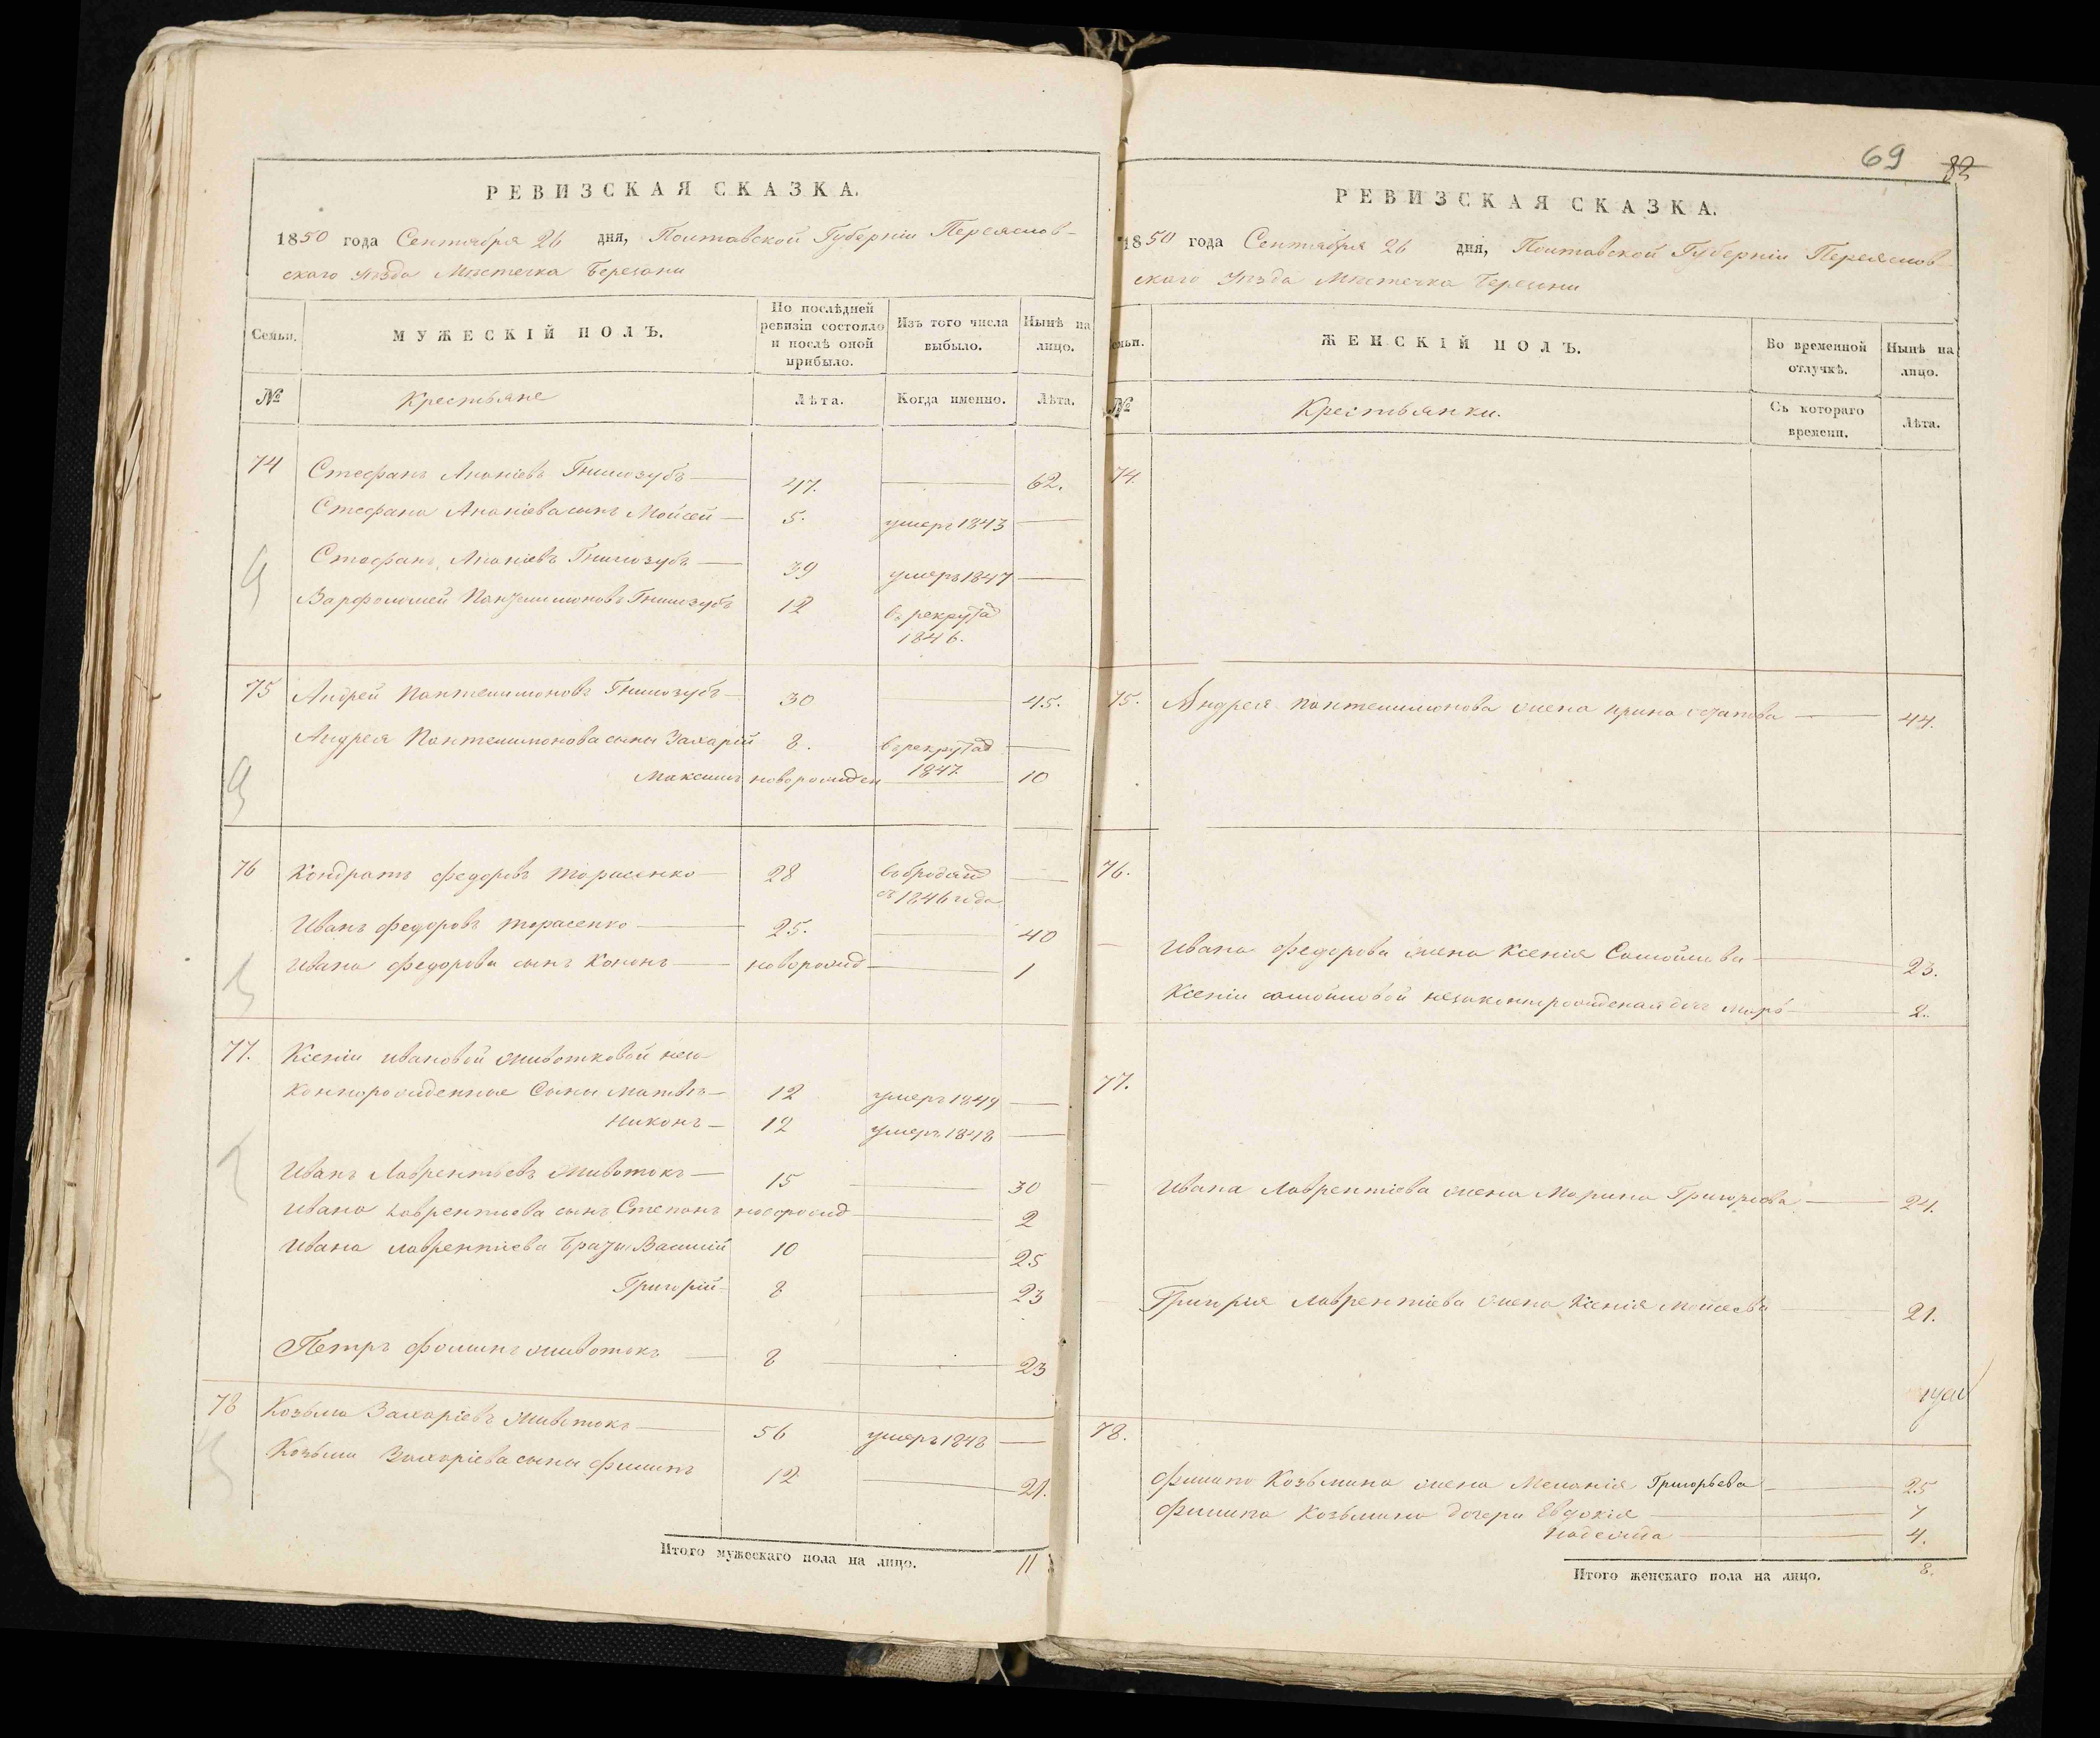 РЕВИЗСКАЯ СКАЗКА.
1850 года Сентября 26 дня, Полтавской Губерніи Переяслов-
скаго уѣзда Мѣстечка Березани
Семьи.
МУЖЕСКІЙ ПОЛЪ.
По послѣдней
ревизіи состояло
и послѣ оной
прибыло.
Изъ того числа
выбыло.
Нынѣ на
лицо.
№
Крестьяне
Лѣта.
Когда именно.
Лѣта.
74 Стефанъ Ананіевъ Гнилозубъ 47. 62.
Стефана Ананіева сынъ Мойсей 5. умеръ 1843
Стефанъ Ананіевъ Гнилозубъ 39 умеръ 1847
Варфоломей Пантелимоновъ Гнилозубъ 12 въ рекрутад
1846.
75 Андрей Пантелимоновъ Гнилозубъ 30 45.
Андрея Пантелимонова сыны Захарій 8. в рекрутад
1847.
Максимъ новорожден 10
76 Кондратъ Федоровъ Тарасенко 28
съ 1846 года
Иванъ Федоровъ Тарасенко 25. 40
Ивана Федорова сынъ Кононъ новорожд 1
77. Ксеніи Ивановой Животковой неза
коннорожденные Сыны Матвѣй 12 умеръ 1849
Никонъ 12 умеръ 1848
Иванъ Лаврентьевъ Животокъ 15 30
Ивана Лаврентьева сынъ Степанъ новорожд 2
Ивана Лаврентіева Браты Василій 10 25
Григорій 8 23
Петръ Фоминъ Животокъ 8 23
78 Козьма Захаріевъ Животокъ 56 умеръ 1848
Козьми Захаріева сыны Филипъ 12 21.
Итого мужескаго пола на лицо. 11
69 82
РЕВИЗСКАЯ СКАЗКА.
1850 года Сентября 26 дня, Полтавской Губерніи Переяслов
скаго Уѣзда Мѣстечка Березани
Семьи.
ЖЕНСКІЙ ПОЛЪ.
Во временной
отлучкѣ.
Нынѣ на
лицо.
№
Крестьянки.
Съ котораго
времени.
Лѣта.
74.
75. Андрея Пантелимонова жена Ирина 44.
76.
Ивана Федорова жена Ксенія Самойлова 23.
Ксеніи Самойловой незаконнорожденая доч 2.
77.
Ивана Лаврентіева жена Марина Григорева 24.
Григорія Лаврентіева жена Ксенія Мойсеева 21.
78.
Филипа Козьмина жена Меланія Григорьева 25
Филипа Козьмина дочери Евдокія 7
4.
Итого женскаго пола на лицо. 8.